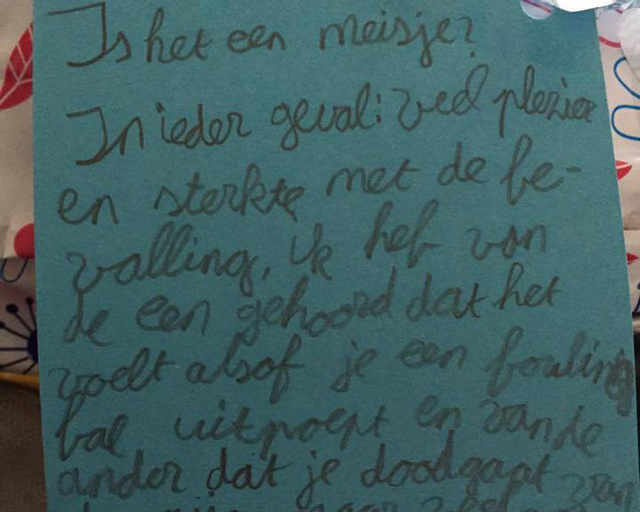 Is het een meisje?
In ieder geval: veel plezier
en sterkte met de be-
valling, ik heb van
de een gehoord dat het
voelt alsof je een bowling
bal uitpoept en van de
ander dat je doodgaat van